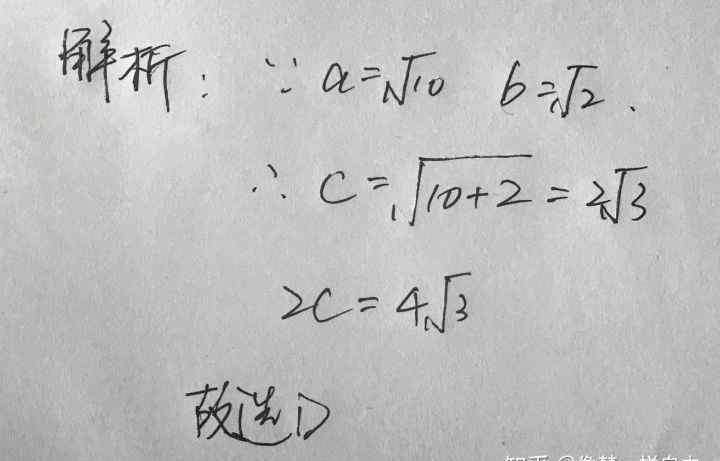 解析: ∵ a=√10 b=√2.
∴ c=√10+2=2√3
2c=4√3
故选D